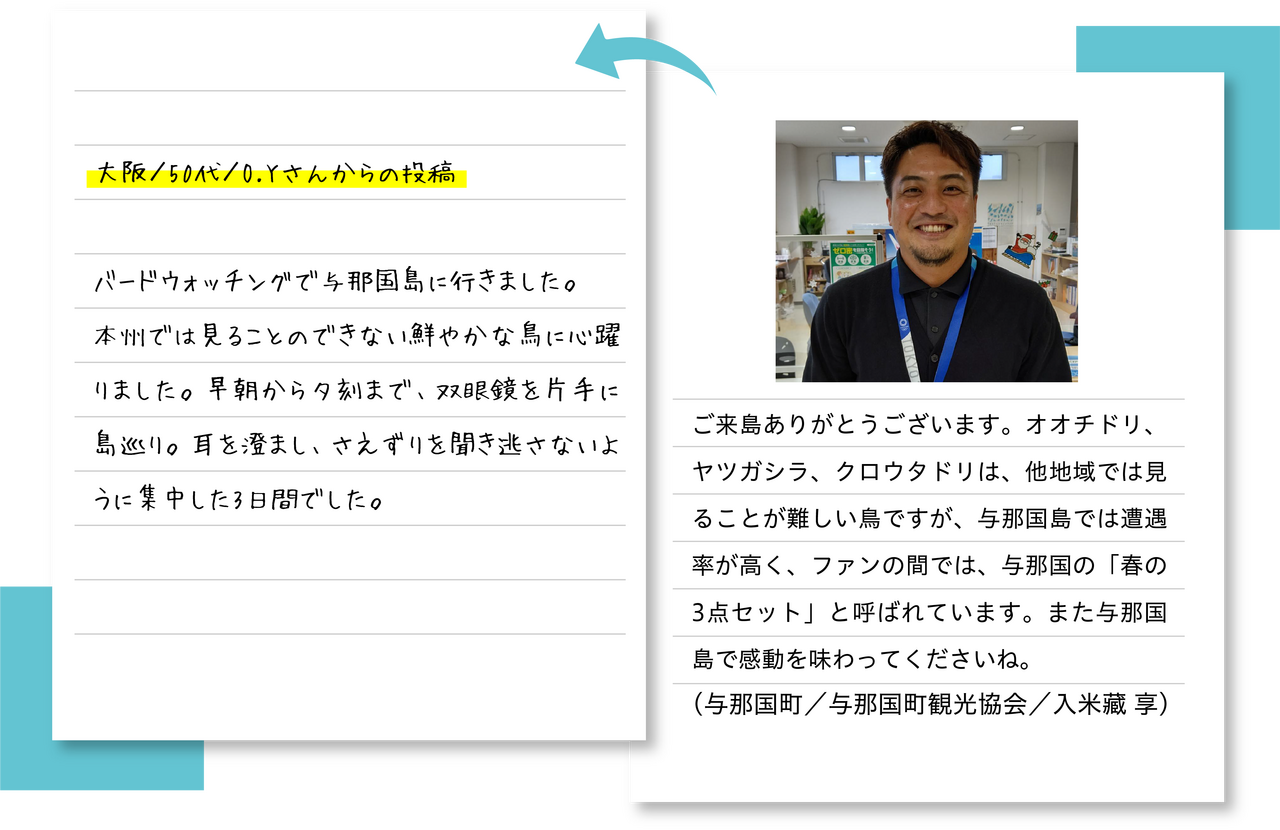 大阪/50代/O.Yさんからの投稿
バードウォッチングで与那国島に行きました。
本州では見ることのできない鮮やかな鳥に心躍
りました。早朝から夕刻まで、双眼鏡を片手に
島巡り。耳を澄まし、さえずりを聞き逃さないよ
うに集中した3日間でした。
ゼロ密
TOKYO
ご来島ありがとうございます。オオチドリ、
ヤツガシラ、クロウタドリは、他地域では見
ることが難しい鳥ですが、与那国島では遭遇
率が高く、ファンの間では、与那国の「春の
3点セット」と呼ばれています。また与那国
島で感動を味わってくださいね。
（与那国町／与那国町観光協会／入米藏 享）